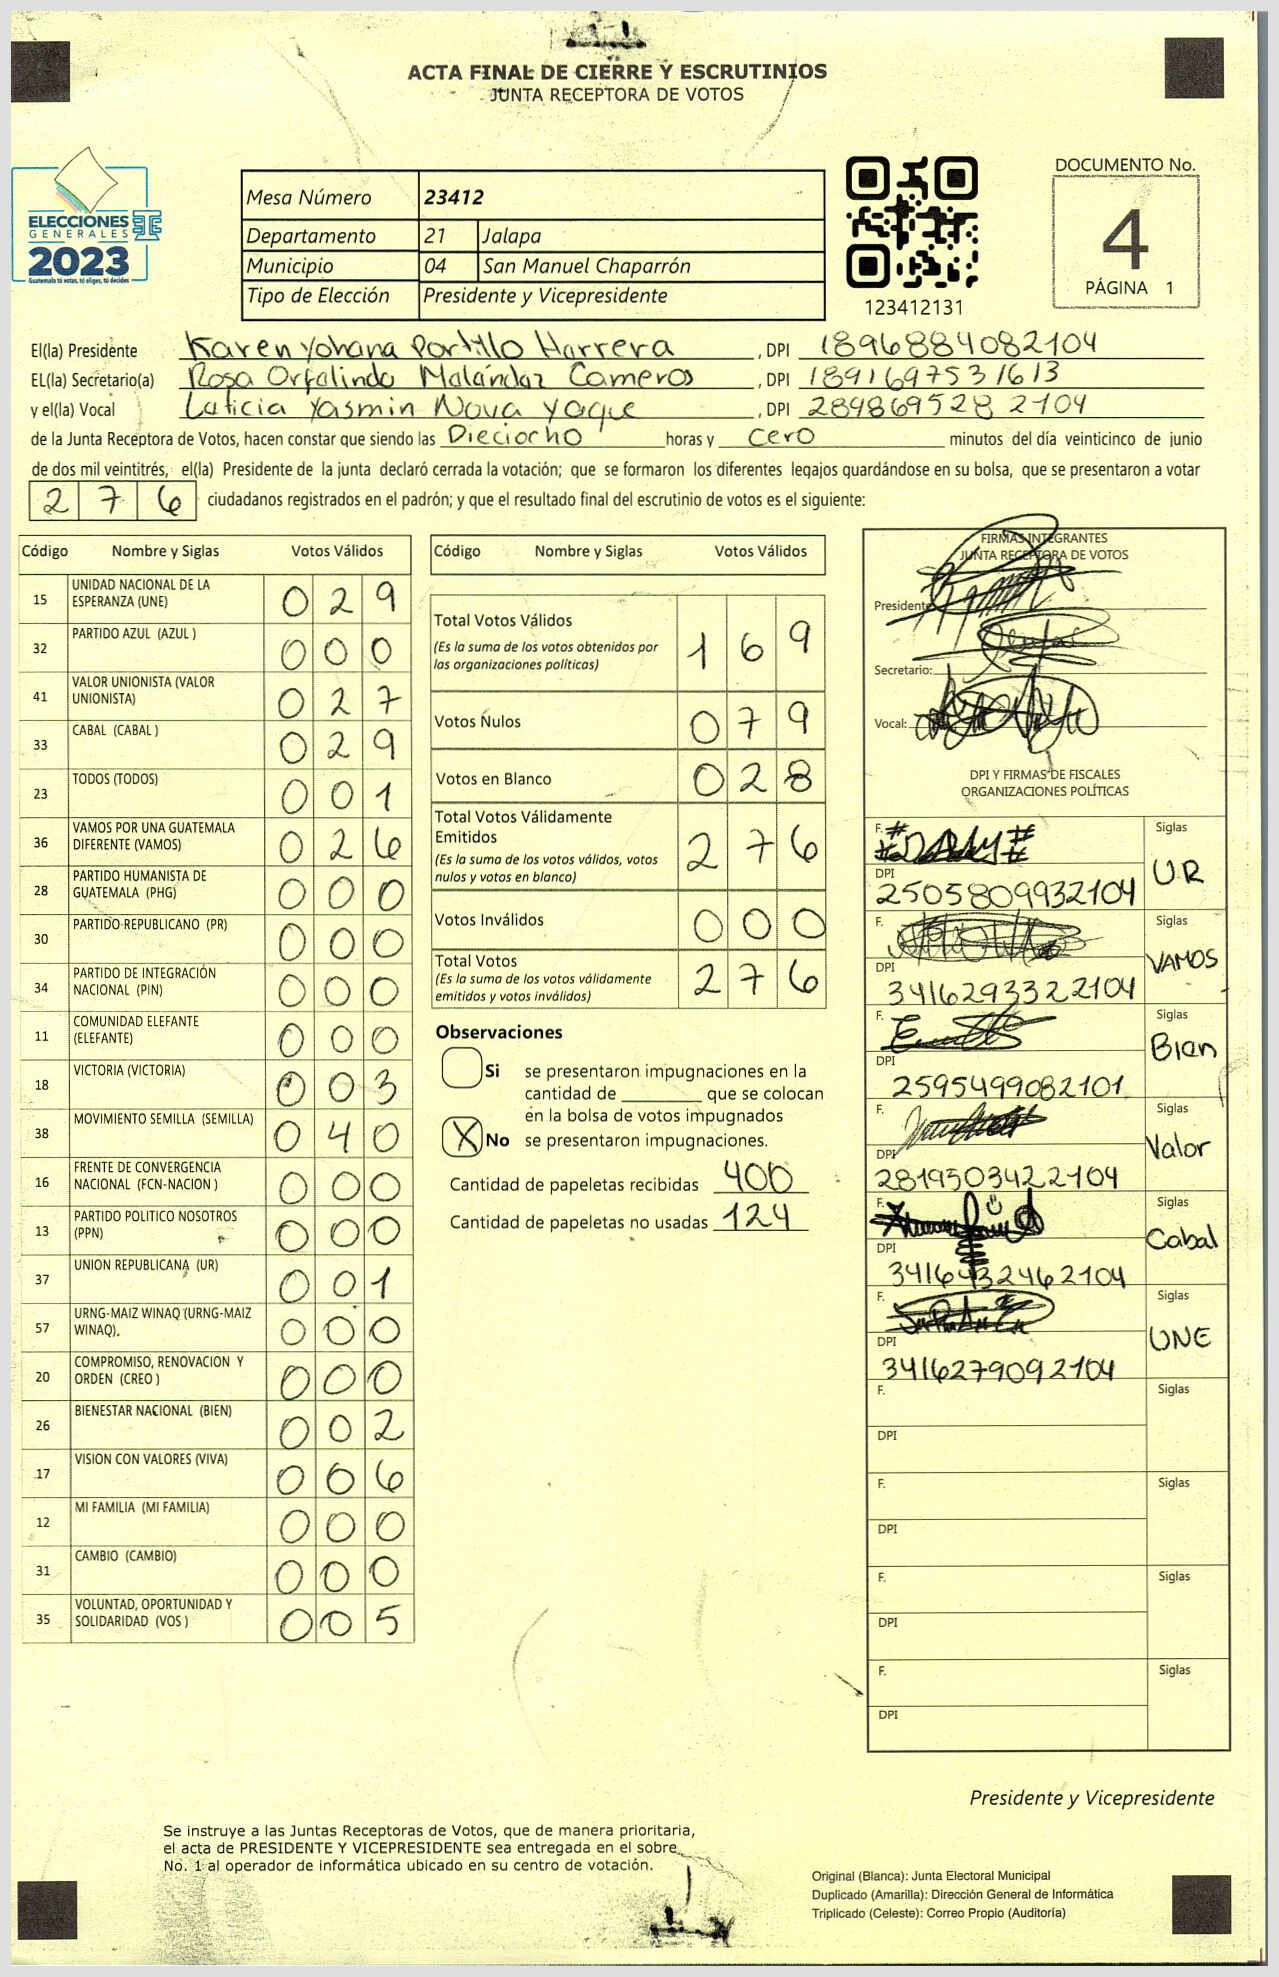 ACTA FINAL DE CIERRE Y ESCRUTINIOS
JUNTA RECEPTORA DE VOTOS
ELECCIONES
GENERALES
2023
Guatemala tú votas, tú eliges, tú decides
Mesa Número 23412
Departamento 21 Jalapa
Municipio 04 San Manuel Chaparrón
Tipo de Elección Presidente y Vicepresidente
123412131
DOCUMENTO No.
4
PÁGINA 1
El(la) Presidente Karen Yohana Portillo Harrera , DPI 1896884082104
EL(la) Secretario(a) Rosa Orfalinda Malándaz Cameros , DPI 1891697531613
y el(la) Vocal Laticia Yasmin Nova yaque , DPI 2898695282104
de la Junta Receptora de Votos, hacen constar que siendo las Dieciocho horas y cero minutos del día veinticinco de junio
de dos mil veintitrés, el(la) Presidente de la junta declaró cerrada la votación; que se formaron los diferentes legajos quardándose en su bolsa, que se presentaron a votar
276 ciudadanos registrados en el padrón; y que el resultado final del escrutinio de votos es el siguiente:
Código Nombre y Siglas Votos Válidos
15 UNIDAD NACIONAL DE LA ESPERANZA (UNE) 029
32 PARTIDO AZUL (AZUL ) 000
41 VALOR UNIONISTA (VALOR UNIONISTA) 027
33 CABAL (CABAL ) 029
23 TODOS (TODOS) 001
36 VAMOS POR UNA GUATEMALA DIFERENTE (VAMOS) 026
28 PARTIDO HUMANISTA DE GUATEMALA (PHG) 000
30 PARTIDO REPUBLICANO (PR) 000
34 PARTIDO DE INTEGRACIÓN NACIONAL (PIN) 000
11 COMUNIDAD ELEFANTE (ELEFANTE) 000
18 VICTORIA (VICTORIA) 003
38 MOVIMIENTO SEMILLA (SEMILLA) 040
16 FRENTE DE CONVERGENCIA NACIONAL (FCN-NACION ) 000
13 PARTIDO POLITICO NOSOTROS (PPN) 000
37 UNION REPUBLICANA (UR) 001
57 URNG-MAIZ WINAQ (URNG-MAIZ WINAQ) 000
20 COMPROMISO, RENOVACION Y ORDEN (CREO ) 000
26 BIENESTAR NACIONAL (BIEN) 002
17 VISION CON VALORES (VIVA) 006
12 MI FAMILIA (MI FAMILIA) 000
31 CAMBIO (CAMBIO) 000
35 VOLUNTAD, OPORTUNIDAD Y SOLIDARIDAD (VOS ) 005
Código Nombre y Siglas Votos Válidos
Total Votos Válidos 169
(Es la suma de los votos obtenidos por
las organizaciones políticas)
Votos Nulos 079
Votos en Blanco 028
Total Votos Válidamente
Emitidos 276
(Es la suma de los votos válidos, votos
nulos y votos en blanco)
Votos Inválidos 000
Total Votos 276
(Es la suma de los votos válidamente
emitidos y votos inválidos)
Observaciones
Si se presentaron impugnaciones en la
cantidad de ________ que se colocan
en la bolsa de votos impugnados
X No se presentaron impugnaciones.
Cantidad de papeletas recibidas 400
Cantidad de papeletas no usadas 124
FIRMAS INTEGRANTES
JUNTA RECEPTORA DE VOTOS
Presidente:
Secretario:
Vocal:
DPI Y FIRMAS DE FISCALES
ORGANIZACIONES POLÍTICAS
F. Siglas
DPI U.R
2505809932104
F. Siglas
DPI VAMOS
3416293322104
F. Siglas
DPI Bien
2595499082101
F. Siglas
DPI Valor
2819503422104
F. Siglas
DPI Cabal
3416432462104
F. Siglas
DPI UNE
3416279092104
F. Siglas
DPI
F. Siglas
DPI
F. Siglas
DPI
F. Siglas
DPI
Presidente y Vicepresidente
Se instruye a las Juntas Receptoras de Votos, que de manera prioritaria,
el acta de PRESIDENTE Y VICEPRESIDENTE sea entregada en el sobre
No. 1 al operador de informática ubicado en su centro de votación.
Original (Blanca): Junta Electoral Municipal
Duplicado (Amarilla): Dirección General de Informática
Triplicado (Celeste): Correo Propio (Auditoría)